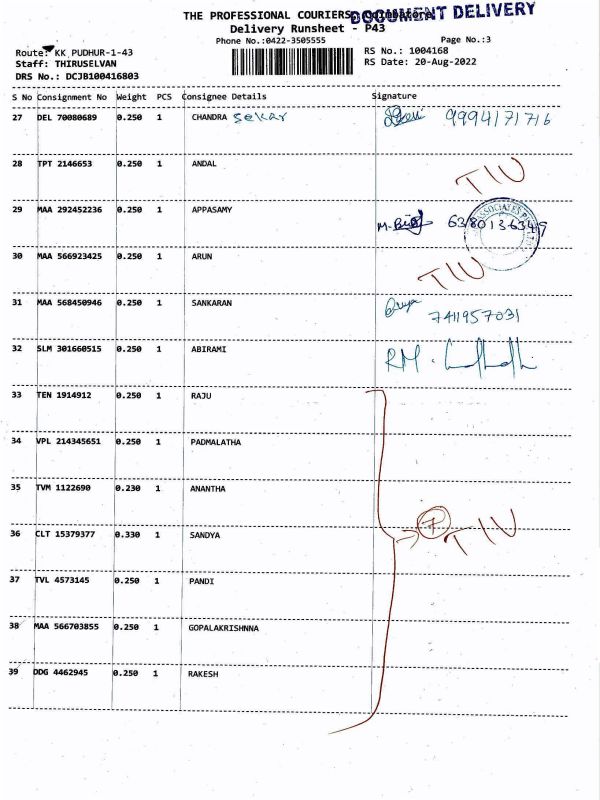 THE PROFESSIONAL COURIERS, Coimbatore
DOCUMENT DELIVERY
Delivery Runsheet - P43
Phone No.:0422-3505555
Page No.:3
Route: KK PUDHUR-1-43
RS No.: 1004168
Staff: THIRUSELVAN
RS Date: 20-Aug-2022
DRS No.: DCJB100416803
S No Consignment No Weight PCS Consignee Details Signature
27 DEL 70080689 0.250 1 CHANDRA Sekar 9994171716
28 TPT 2146653 0.250 1 ANDAL TIU
29 MAA 292452236 0.250 1 APPASAMY 6380136349
ASSOCIATES
30 MAA 566923425 0.250 1 ARUN TIU
31 MAA 568450946 0.250 1 SANKARAN 7411957031
32 SLM 301660515 0.250 1 ABIRAMI RM.
33 TEN 1914912 0.250 1 RAJU
34 VPL 214345651 0.250 1 PADMALATHA
35 TVM 1122690 0.230 1 ANANTHA
36 CLT 15379377 0.330 1 SANDYA 7 TIU
37 TVL 4573145 0.250 1 PANDI
38 MAA 566703855 0.250 1 GOPALAKRISHNNA
39 DDG 4462945 0.250 1 RAKESH